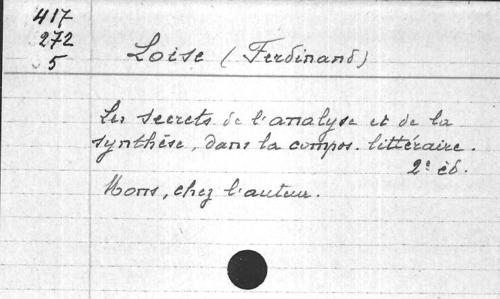 417
272
5
Loise (Ferdinand)
Les secrets de l'analyse et de la
synthèse, dans la compos. littéraire.
2e éd.
Mons, chez l'auteur.